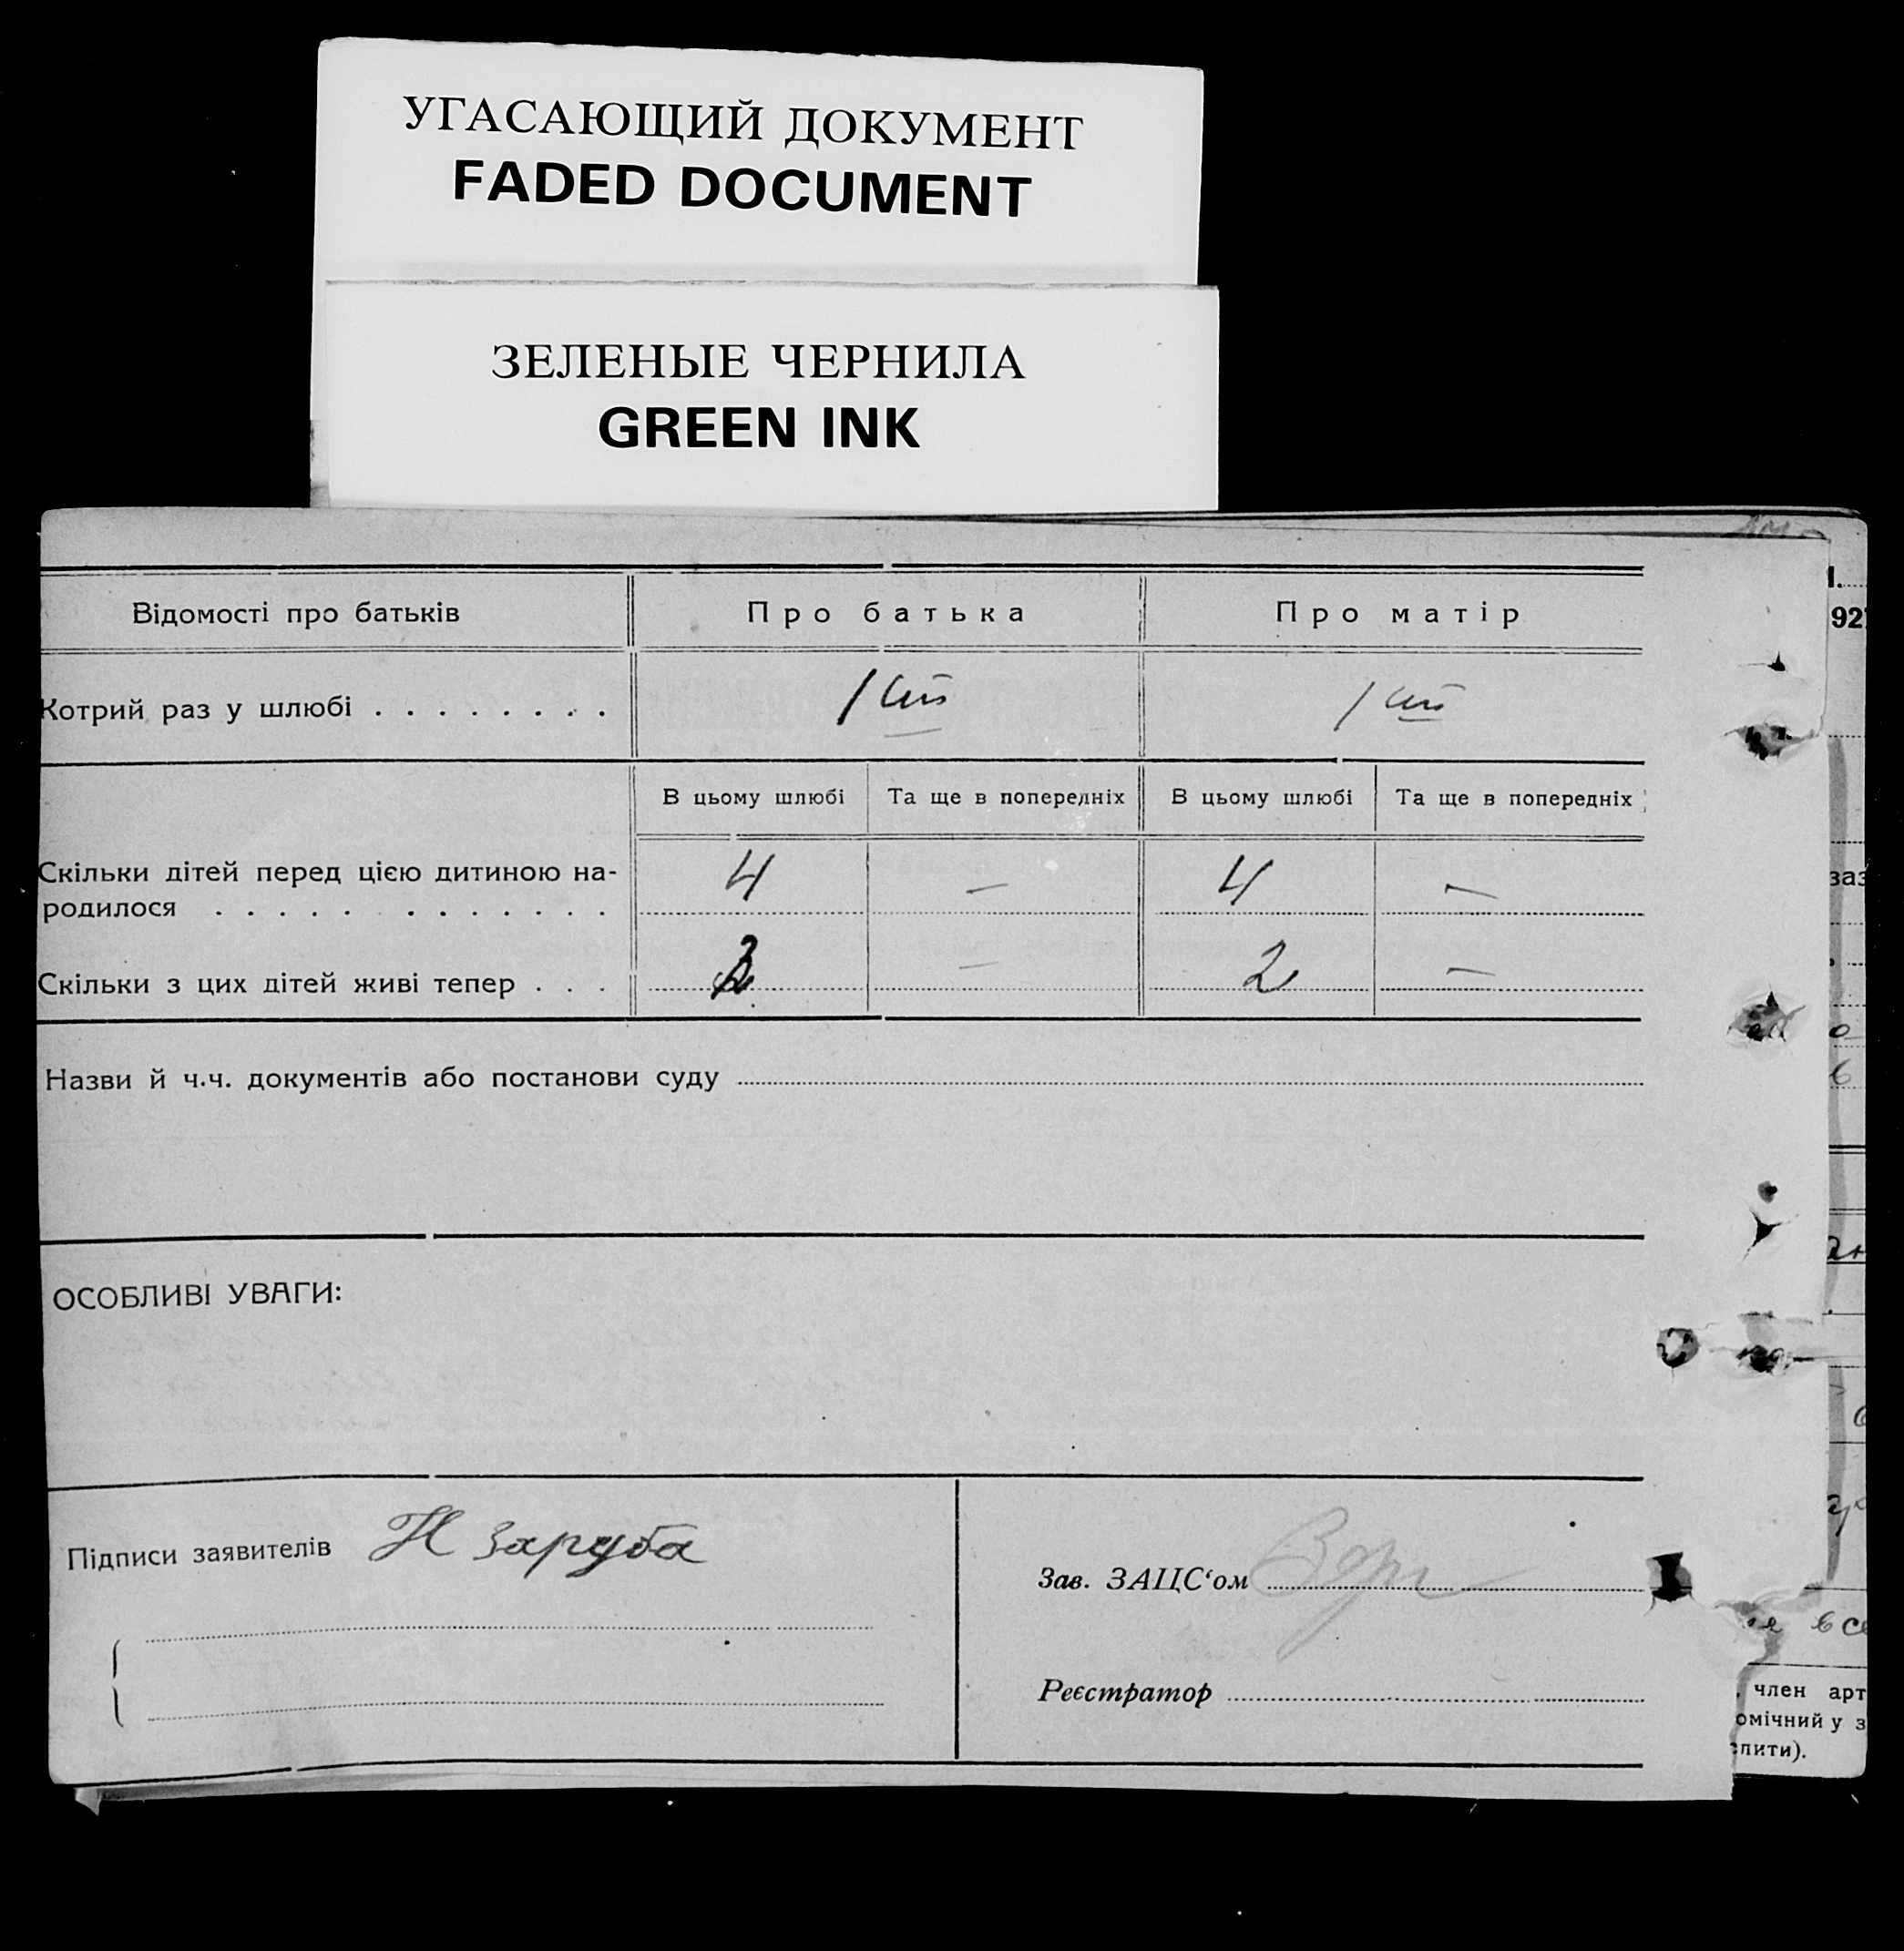 УГАСАЮЩИЙ ДОКУМЕНТ
FADED DOCUMENT
ЗЕЛЕНЫЕ ЧЕРНИЛА
GREEN INK
Відомості про батьків Про батька Про матір
Котрий раз у шлюбі . . . . . . . . 1 ий 1 ий
В цьому шлюбі Та ще в попередніх В цьому шлюбі Та ще в попередніх
Скільки дітей перед цією дитиною на-
родилося . . . . . . . . . . . . . 4 — 4 —
Скільки з цих дітей живі тепер . . . 2 — 2 —
Назви й ч.ч. документів або постанови суду
ОСОБЛИВІ УВАГИ:
Підписи заявителів Н Заруба
Зав. ЗАЦС‘ом
Реєстратор
92
член арт
омічний у з
пити).